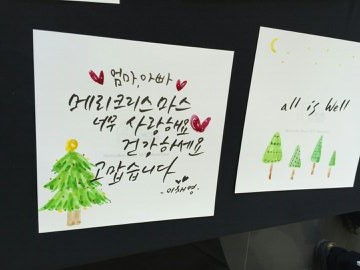 엄마, 아빠
메리크리스마스
너무 사랑해요
건강하세요
고맙습니다
-이해영-
all is well